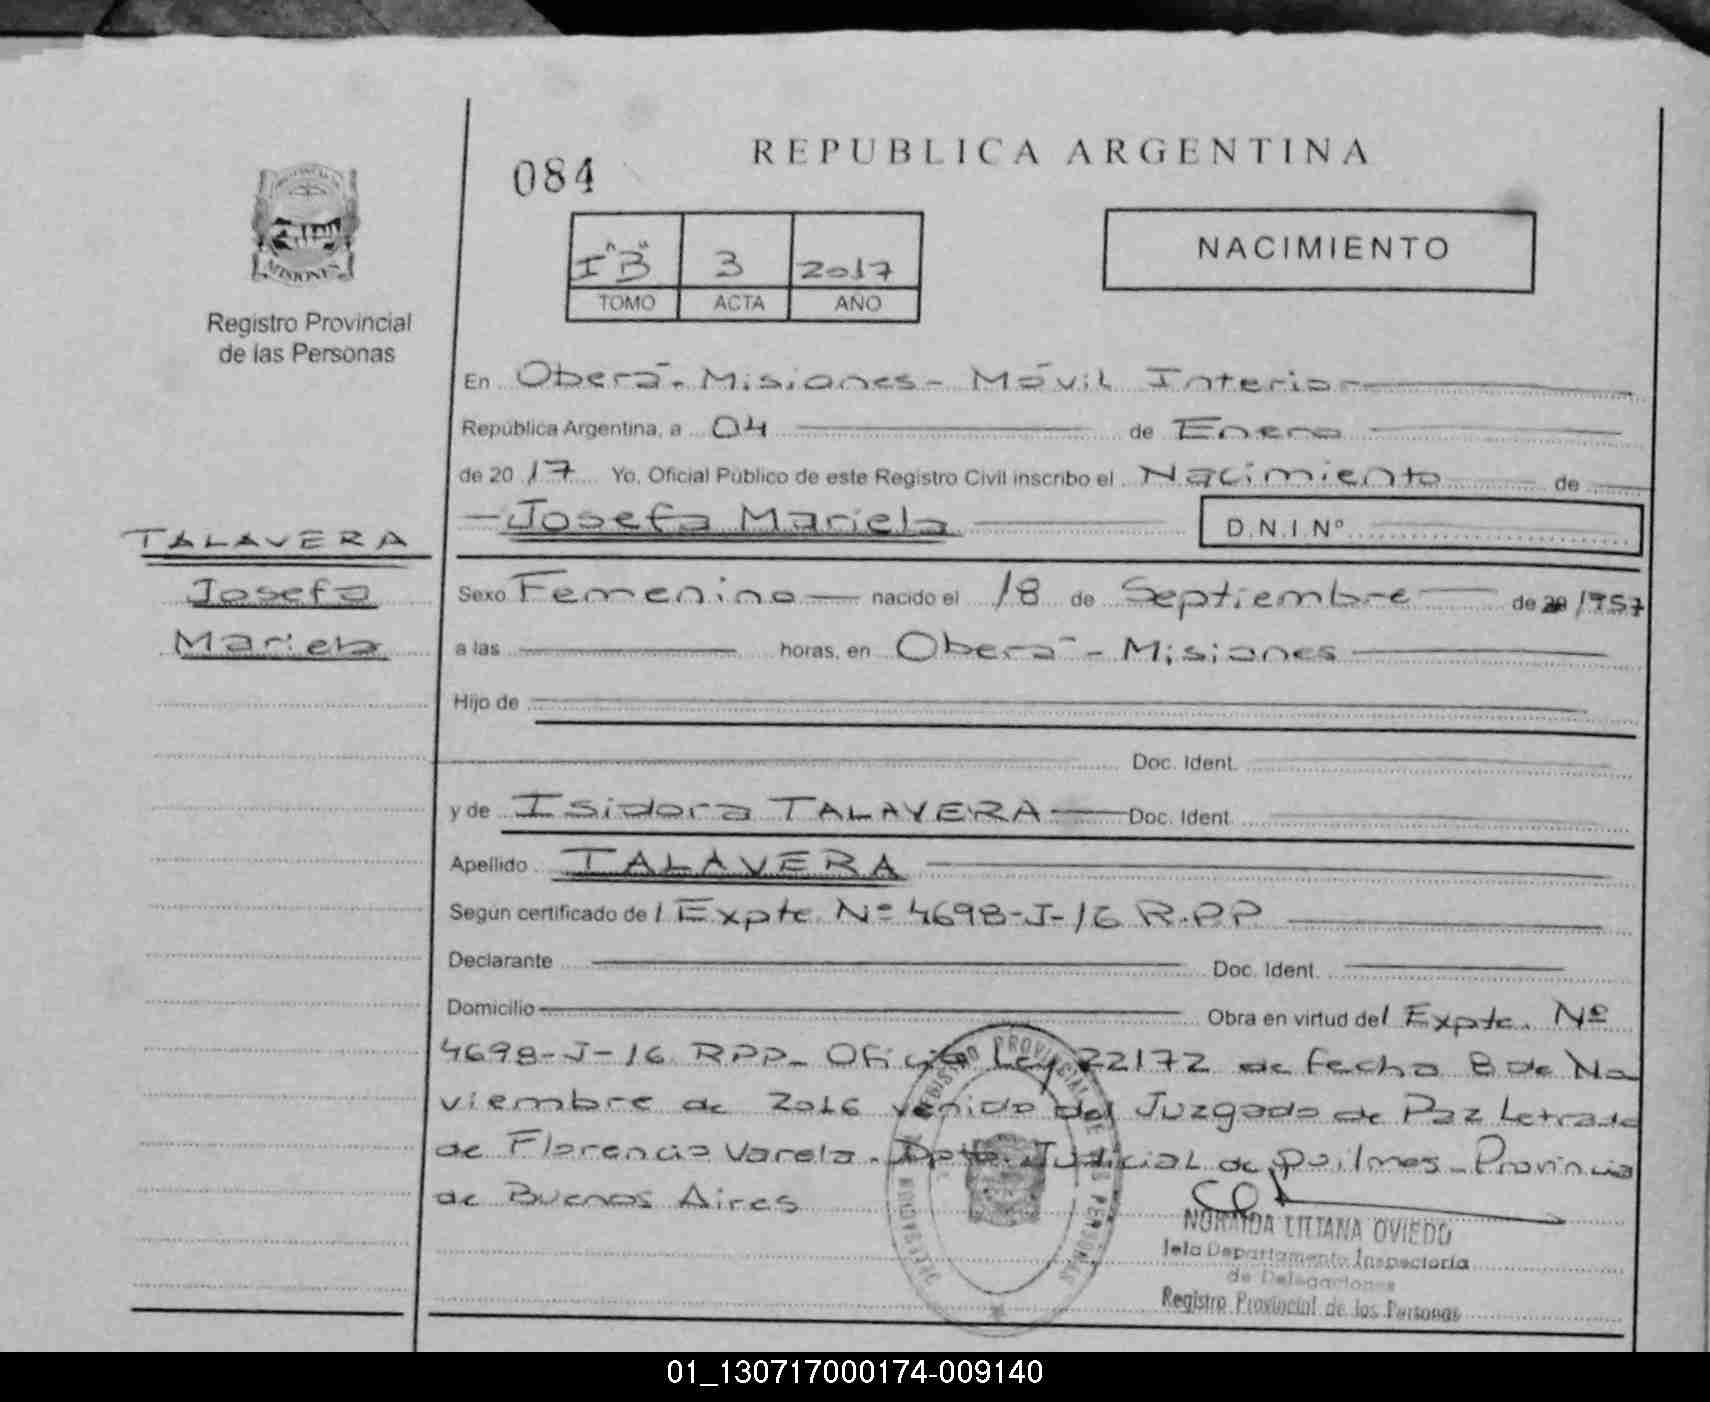 REPUBLICA ARGENTINA
084
PROVINCIA
MISIONES
Registro Provincial
de las Personas
I "B" 3 2017
TOMO ACTA AÑO
NACIMIENTO
En Oberá - Misiones - Móvil Interior
República Argentina, a 04 de Enero
de 2017 Yo, Oficial Público de este Registro Civil inscribo el Nacimiento de
Josefa Mariela D.N.I.Nº
TALAVERA
Josefa
Mariela
Sexo Femenino nacido el 18 de Septiembre de 20 1957
a las horas, en Oberá - Misiones
Hijo de
Doc. Ident.
y de Isidora TALAVERA Doc. Ident.
Apellido TALAVERA
Según certificado del Expte Nº 4698-J-16 R.P.P
Declarante Doc. Ident.
Domicilio Obra en virtud del Expte. Nº
4698-J-16 RPP- Oficio Ley 22172 de fecha 8 de No
viembre de 2016 venido del Juzgado de Paz Letrado
de Florencio Varela. Dpto. Judicial de Quilmes - Provincia
de Buenos Aires
REGISTRO PROVINCIAL DE LAS PERSONAS
NORAIDA LILIANA OVIEDO
Jefa Departamento Inspectoria
de Delegaciones
Registro Provincial de las Personas
01_130717000174-009140